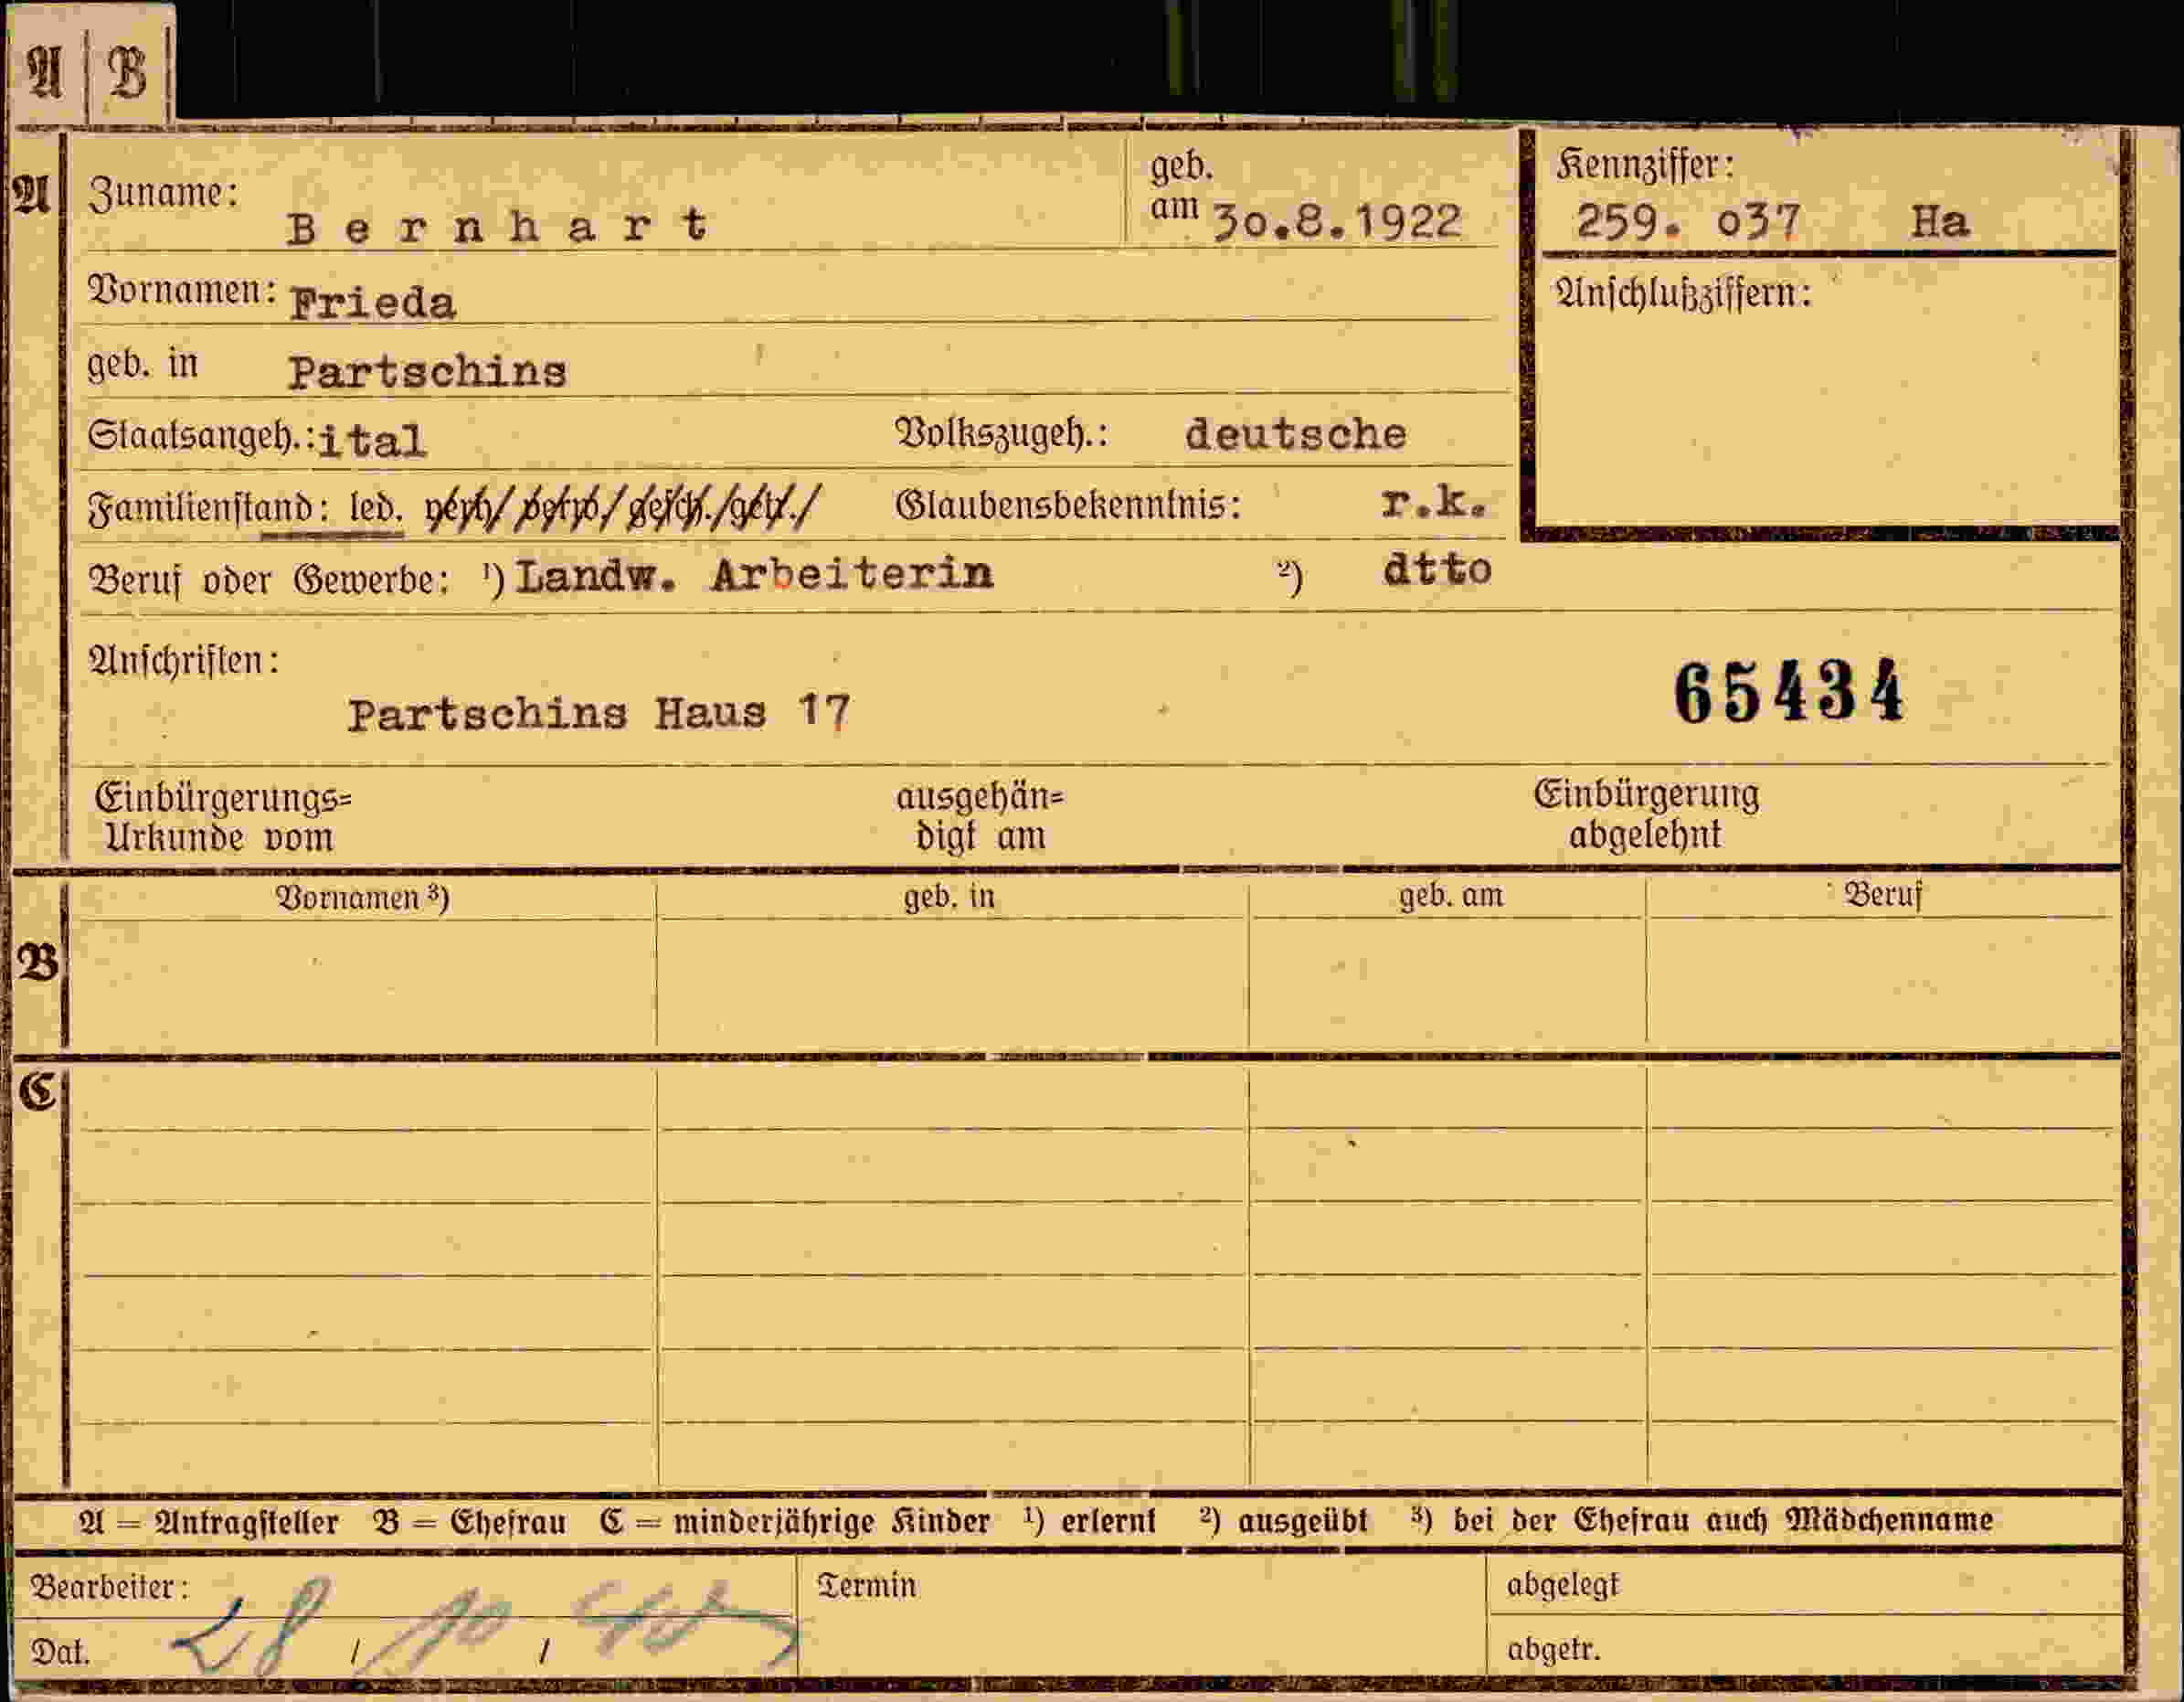 A B
A
Zuname: Bernhart
geb. am 30.8.1922
Kennziffer:
259. o37 Ha
Vornamen: Frieda
Anschlußziffern:
geb. in Partschins
Staatsangeh.: ital Volkszugeh.: deutsche
Familienstand: led. verh/ verw/ gesch./getr./ Glaubensbekenntnis: r.k.
Beruf oder Gewerbe: ¹) Landw. Arbeiterin ²) dtto
Anschriften:
Partschins Haus 17
65434
Einbürgerungs= ausgehän= Einbürgerung
Urkunde vom digt am abgelehnt
B
Vornamen ³) geb. in geb. am Beruf
C
A = Antragsteller B = Ehefrau C = minderjährige Kinder ¹) erlernt ²) ausgeübt ³) bei der Ehefrau auch Mädchenname
Bearbeiter: Termin abgelegt
Dat. 28 / 10 / abgetr.